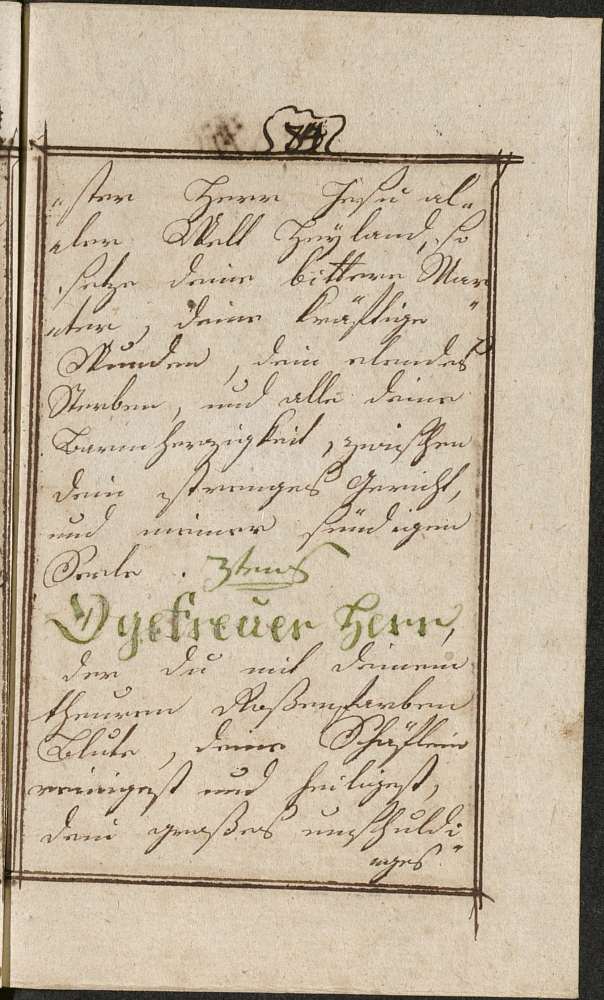 74
"ster Herr Jesu al"
"ler Welt Heyland, so
setze deine bittere Mar
"ter, deine kräftige
Wunden, dein elendes
Sterben, und alle deine
Barmherzigkeit, zwischen
dein strenges Gericht,
und meiner sündigen
Seele. 3tens
O getreuer Herr,
der du mit deinem
theuren Roßenfarben
Blute, deine Schäflein
reinigest und heiligest,
dein großes unschuldi"
"ges